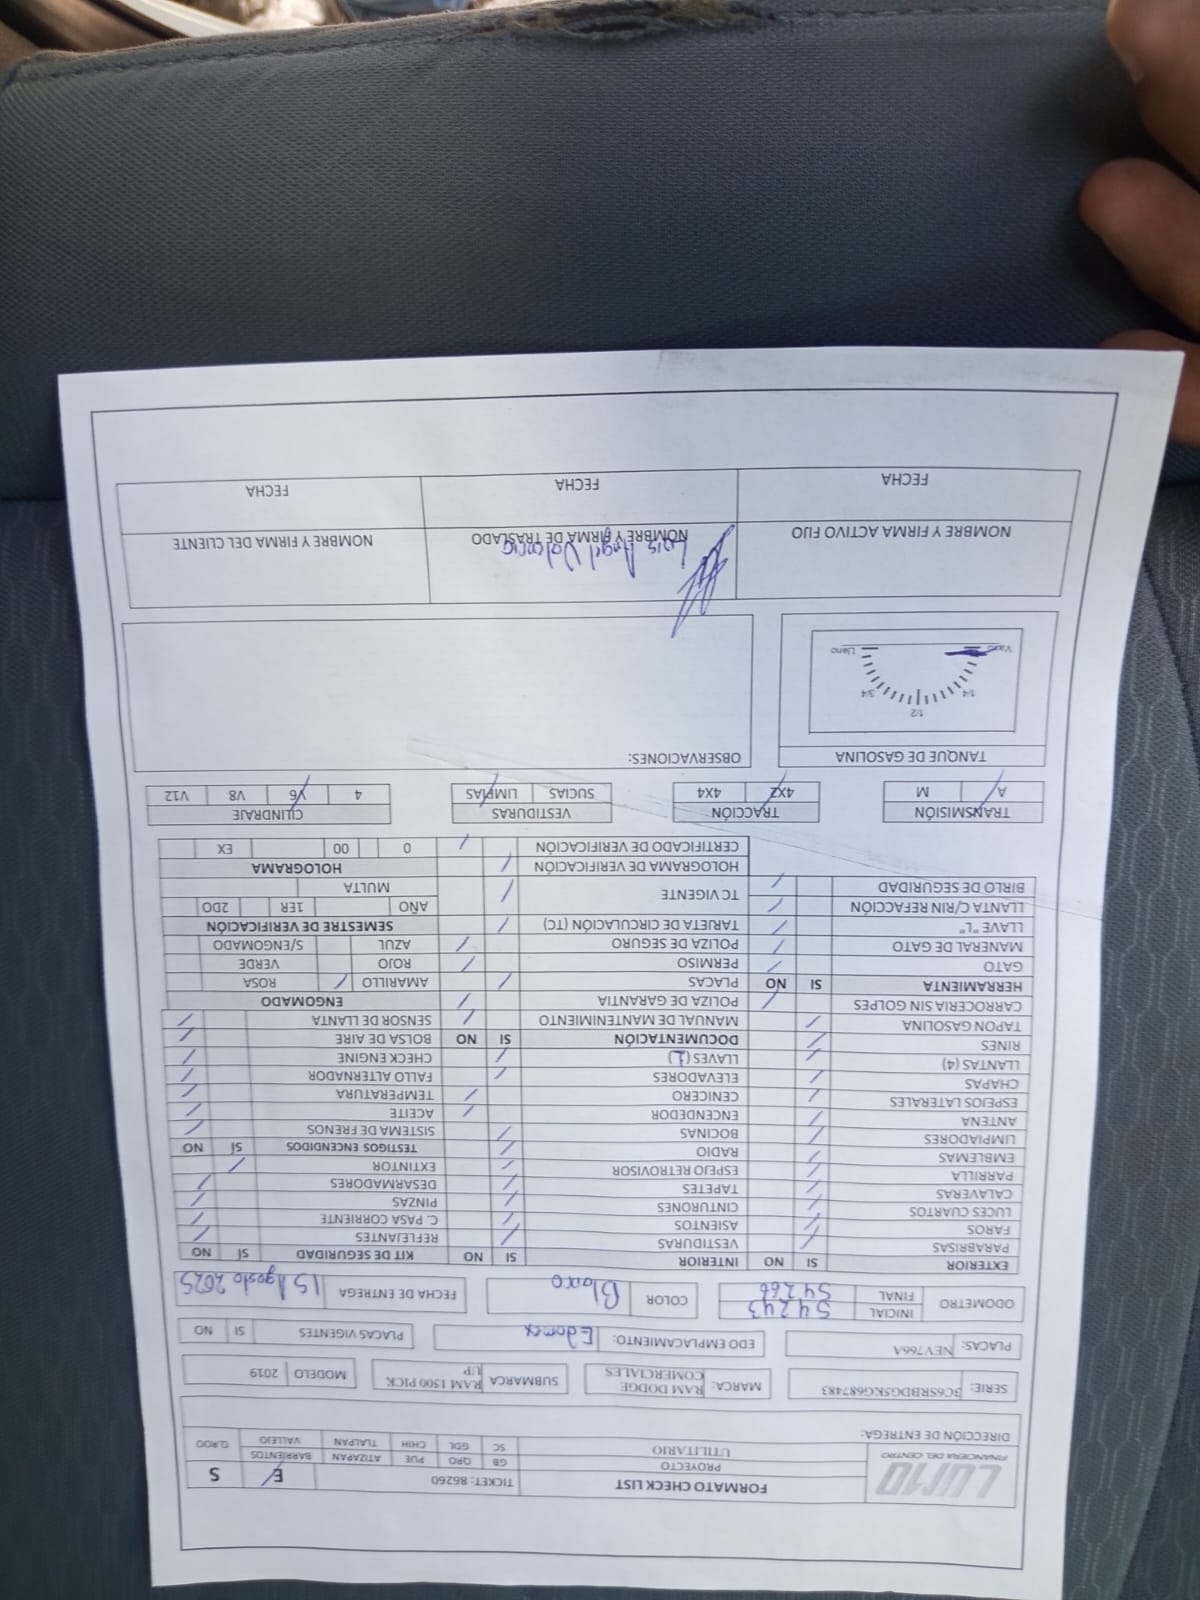 LUMO
FINANCIERA DEL CENTRO
FORMATO CHECK LIST
TICKET: 86260
E
S
PROYECTO
UTILITARIO
GB QRO PUE ATIZAPAN BARRIENTOS Q.ROO
SC GDL CHIH TLALPAN VALLEJO
DIRECCIÓN DE ENTREGA:
SERIE: 3C6SRBDG5KG687483
MARCA: RAM DODGE COMERCIALES
SUBMARCA RAM 1500 PICK UP
MODELO 2019
PLACAS: NEV766A
EDO EMPLACAMIENTO: Edomex
PLACAS VIGENTES SI NO
ODOMETRO INICIAL 54243
FINAL 54266
COLOR Blanco
FECHA DE ENTREGA 15 Agosto 2025
EXTERIOR SI NO
PARABRISAS
FAROS
LUCES CUARTOS
CALAVERAS
PARRILLA
EMBLEMAS
LIMPIADORES
ANTENA
ESPEJOS LATERALES
CHAPAS
LLANTAS (4)
RINES
TAPON GASOLINA
CARROCERIA SIN GOLPES
HERRAMIENTA SI NO
GATO
MANERAL DE GATO
LLAVE "L"
LLANTA C/RIN REFACCIÓN
BIRLO DE SEGURIDAD
INTERIOR SI NO
VESTIDURAS
ASIENTOS
CINTURONES
TAPETES
ESPEJO RETROVISOR
RADIO
BOCINAS
ENCENDEDOR
CENICERO
ELEVADORES
LLAVES (1)
DOCUMENTACIÓN SI NO
MANUAL DE MANTENIMIENTO
POLIZA DE GARANTIA
PLACAS
PERMISO
POLIZA DE SEGURO
TARJETA DE CIRCULACIÓN (TC)
TC VIGENTE
HOLOGRAMA DE VERIFICACIÓN
CERTIFICADO DE VERIFICACIÓN
KIT DE SEGURIDAD SÍ NO
REFLEJANTES
C. PASA CORRIENTE
PINZAS
DESARMADORES
EXTINTOR
TESTIGOS ENCENDIDOS SÍ NO
SISTEMA DE FRENOS
ACEITE
TEMPERATURA
FALLO ALTERNADOR
CHECK ENGINE
BOLSA DE AIRE
SENSOR DE LLANTA
ENGOMADO
AMARILLO ROSA
ROJO VERDE
AZUL S/ENGOMADO
SEMESTRE DE VERIFICACIÓN
AÑO 1ER 2DO
MULTA
HOLOGRAMA
0 00 EX
TRANSMISIÓN
A M
TRACCIÓN
4X2 4X4
VESTIDURAS
SUCIAS LIMPIAS
CILINDRAJE
4 V6 V8 V12
TANQUE DE GASOLINA
Vacío 1/4 1/2 3/4 Lleno
OBSERVACIONES:
Luis Angel
NOMBRE Y FIRMA ACTIVO FIJO
NOMBRE Y FIRMA DE TRASLADO
NOMBRE Y FIRMA DEL CLIENTE
FECHA
FECHA
FECHA